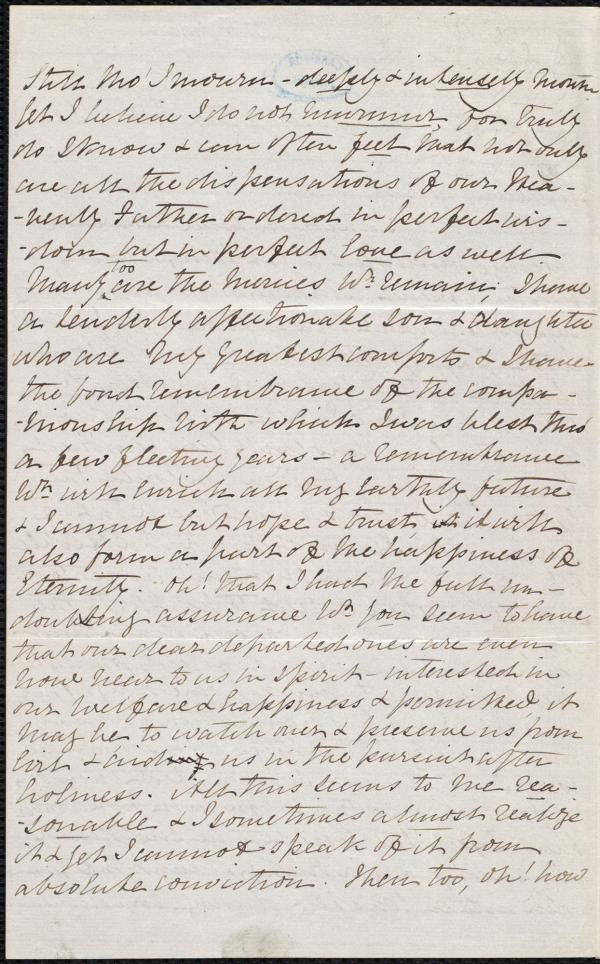 Still tho' I mourn - deeply & intensely mourn
yet I believe I do not murmur, for truly
do I know & can often feel that not only
are all the dispensations of our Hea-
-venly Father ordered in perfect wis-
-dom but in perfect love as well.
Many too are the mercies wh. remain; I have
a tenderly affectionate son & daughter
who are my greatest comforts & I have
the fond remembrance of the compa-
-nionship with which I was blest thro'
a few fleeting years - a remembrance
wh. will enrich all my earthly future
& I cannot but hope & trust, it will
also form a part of the happiness of
Eternity. Oh! that I had the full un-
doubting assurance wh. you seem to have
that our dear departed ones are even
now near to us in spirit - interested in
our welfare & happiness & permitted, it
may be to watch over & preserve us from
evil & aid us in the pursuit after
holiness. All this seems to me rea-
-sonable & I sometimes almost realize
it & yet I cannot speak of it from
absolute conviction. Then too, oh! how